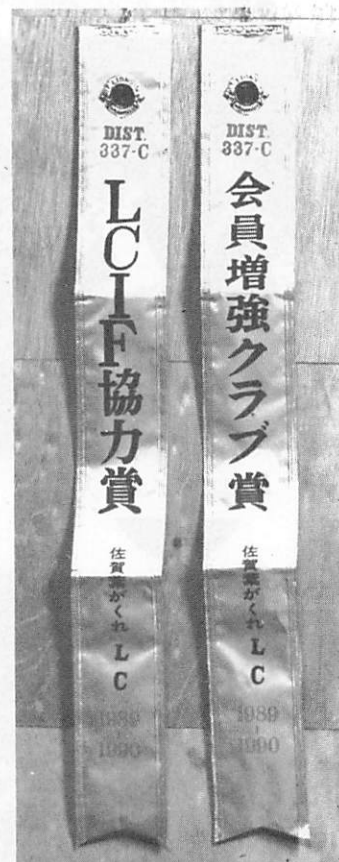 DIST.
337-C
LCIF協力賞
佐賀葉がくれLC
1989
-
1990
DIST.
337-C
会員増強クラブ賞
佐賀葉がくれLC
1989
-
1990